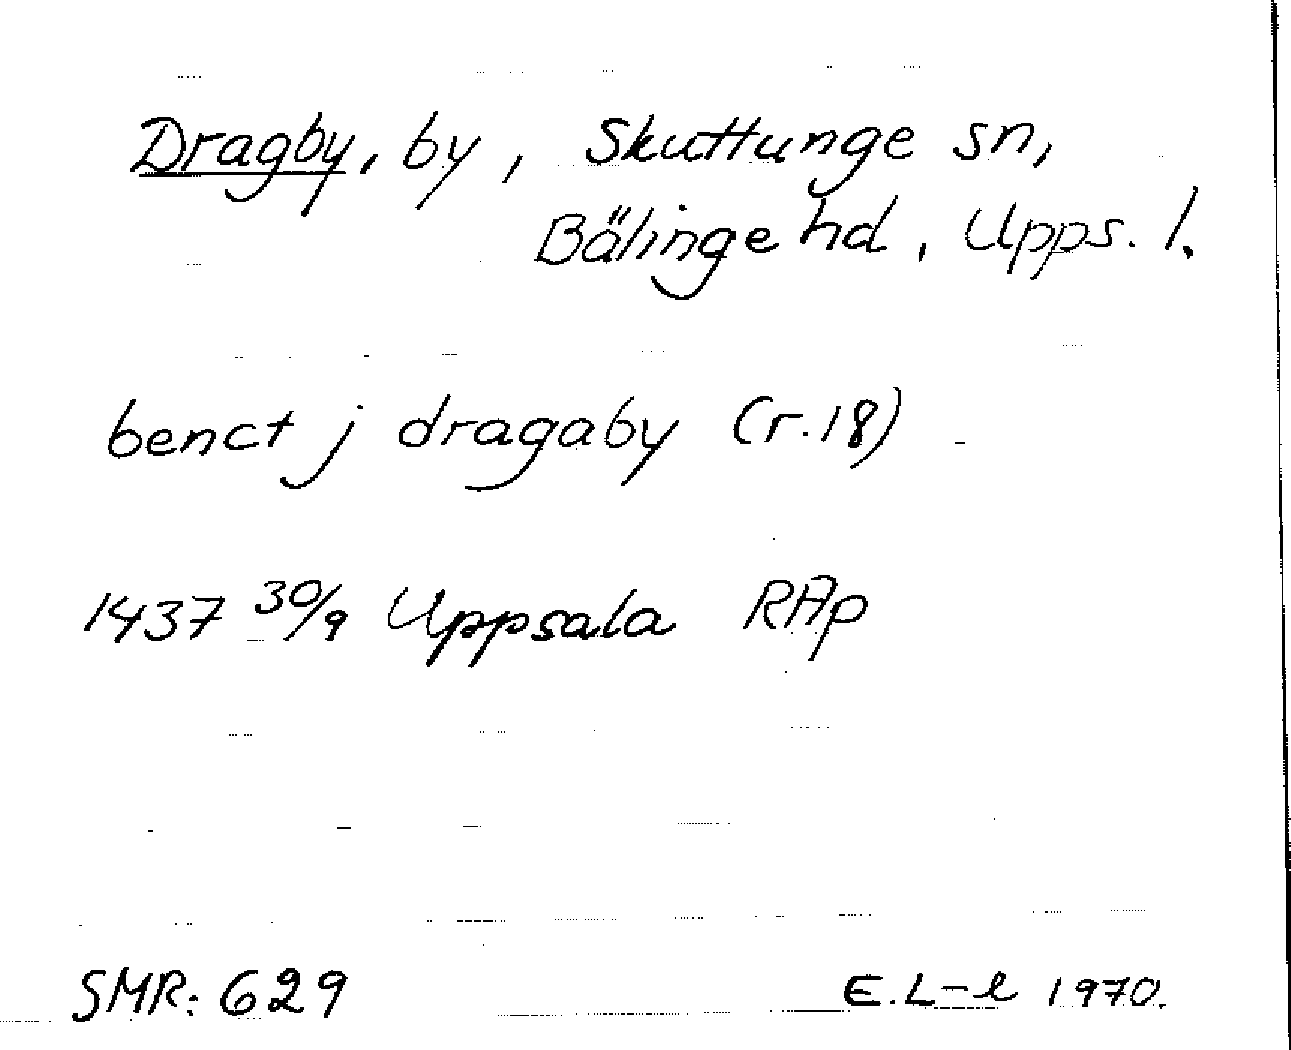 Dragby, by, Skuttunge sn,
Bälinge hd, Upps. l.
benct j dragaby (r.18)
1437 30/9 Uppsala RAp
SMR: 629
E.L-l 1970.